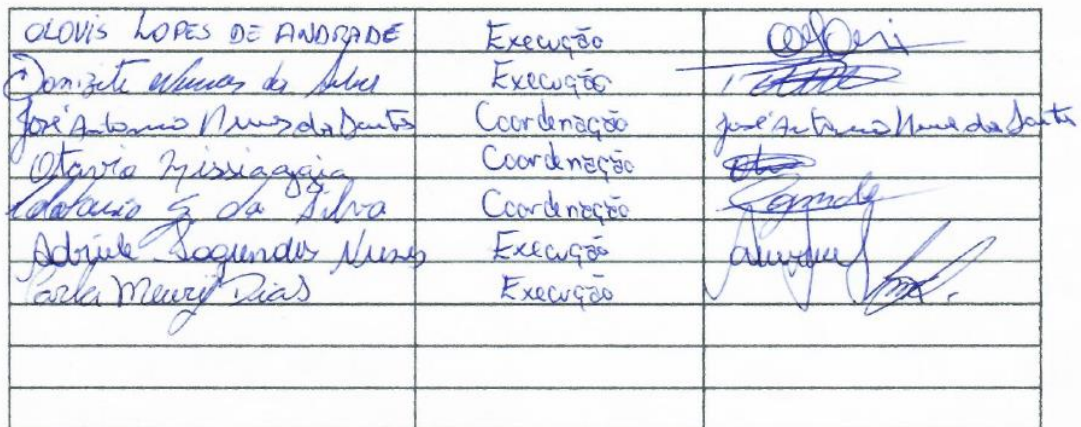 CLOVIS LOPES DE ANDRADE Execução
Donizete da Silva Execução
José Antonio Nunes dos Santos Coordenação José Antonio Nunes dos Santos
Otavio Missiaggia Coordenação
da Silva Coordenação
Adriele Fagundes Nunes Execução
Carla Meury Dias Execução